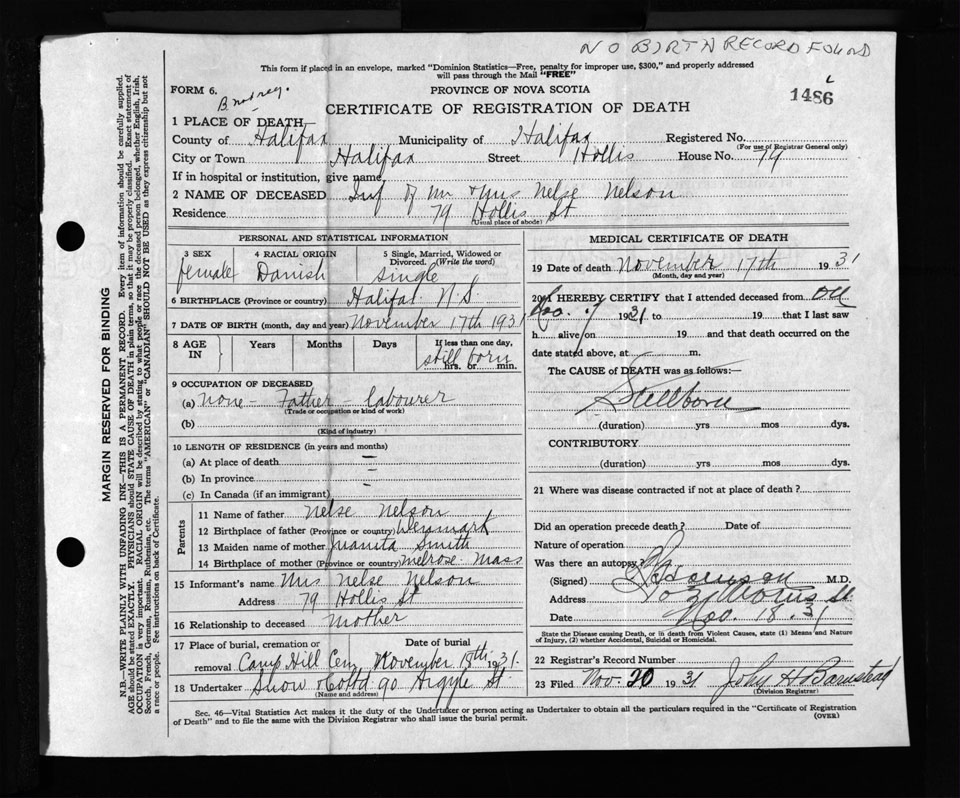 NO BIRTH RECORD FOUND
This form if placed in an envelope, marked "Dominion Statistics—Free, penalty for improper use, $300," and properly addressed
will pass through the Mail "FREE"
FORM 6.
PROVINCE OF NOVA SCOTIA
1486
CERTIFICATE OF REGISTRATION OF DEATH
1 PLACE OF DEATH
County of Halifax Municipality of Halifax Registered No.
(For use of Registrar General only)
City or Town Halifax Street Hollis House No. 79
If in hospital or institution, give name
2 NAME OF DECEASED Inf of Mr & Mrs Nelse Nelson
Residence 79 Hollis St
(Usual place of abode)
PERSONAL AND STATISTICAL INFORMATION
3 SEX 4 RACIAL ORIGIN 5 Single, Married, Widowed or
Divorced. (Write the word)
female Danish single
6 BIRTHPLACE (Province or country) Halifax N.S.
7 DATE OF BIRTH (month, day and year) November 17th 1931
8 AGE IN Years Months Days If less than one day,
still born
hrs. or min.
9 OCCUPATION OF DECEASED
(a) none - Father - labourer
(Trade or occupation or kind of work)
(b)
(Kind of industry)
10 LENGTH OF RESIDENCE (in years and months)
(a) At place of death —
(b) In province —
(c) In Canada (if an immigrant) —
Parents
11 Name of father Nelse Nelson
12 Birthplace of father (Province or country) Denmark
13 Maiden name of mother Juanita Smith
14 Birthplace of mother (Province or country) Melrose Mass
15 Informant's name Mrs Nelse Nelson
Address 79 Hollis St
16 Relationship to deceased mother
17 Place of burial, cremation or removal Date of burial
Camp Hill Cem November 18th 1931.
18 Undertaker Snow & Co Ltd 90 Argyle St.
(Name and address)
MEDICAL CERTIFICATE OF DEATH
19 Date of death November 17th 1931
(Month, day and year)
20 I HEREBY CERTIFY that I attended deceased from
1931 to 19 that I last saw
h alive on 19 and that death occurred on the
date stated above, at m.
The CAUSE of DEATH was as follows:—
Stillborn
(duration) yrs mos dys.
CONTRIBUTORY
(duration) yrs mos dys.
21 Where was disease contracted if not at place of death?
Did an operation precede death? Date of
Nature of operation
Was there an autopsy?
(Signed) M.D.
Address Morris St
Date Nov. 18. 31
State the Disease causing Death, or in death from Violent Causes, state (1) Means and Nature
of Injury, (2) whether Accidental, Suicidal or Homicidal.
22 Registrar's Record Number
23 Filed Nov. 20 1931 John H Barnstead
(Division Registrar)
Sec. 46—Vital Statistics Act makes it the duty of the Undertaker or person acting as Undertaker to obtain all the particulars required in the "Certificate of Registration
of Death" and to file the same with the Division Registrar who shall issue the burial permit.
(OVER)
MARGIN RESERVED FOR BINDING
N.B.—WRITE PLAINLY WITH UNFADING INK—THIS IS A PERMANENT RECORD. Every item of information should be carefully supplied.
AGE should be stated EXACTLY. PHYSICIANS should STATE CAUSE OF DEATH in plain terms, so that it may be properly classified. Exact statement of
OCCUPATION is very important. RACIAL ORIGIN will be described by stating to what people or race the deceased person belonged, whether English, Irish,
Scotch, French, German, Russian, Ruthenian, etc. The terms "AMERICAN" or "CANADIAN" SHOULD NOT BE USED as they express citizenship but not
a race or people. See instructions on back of Certificate.